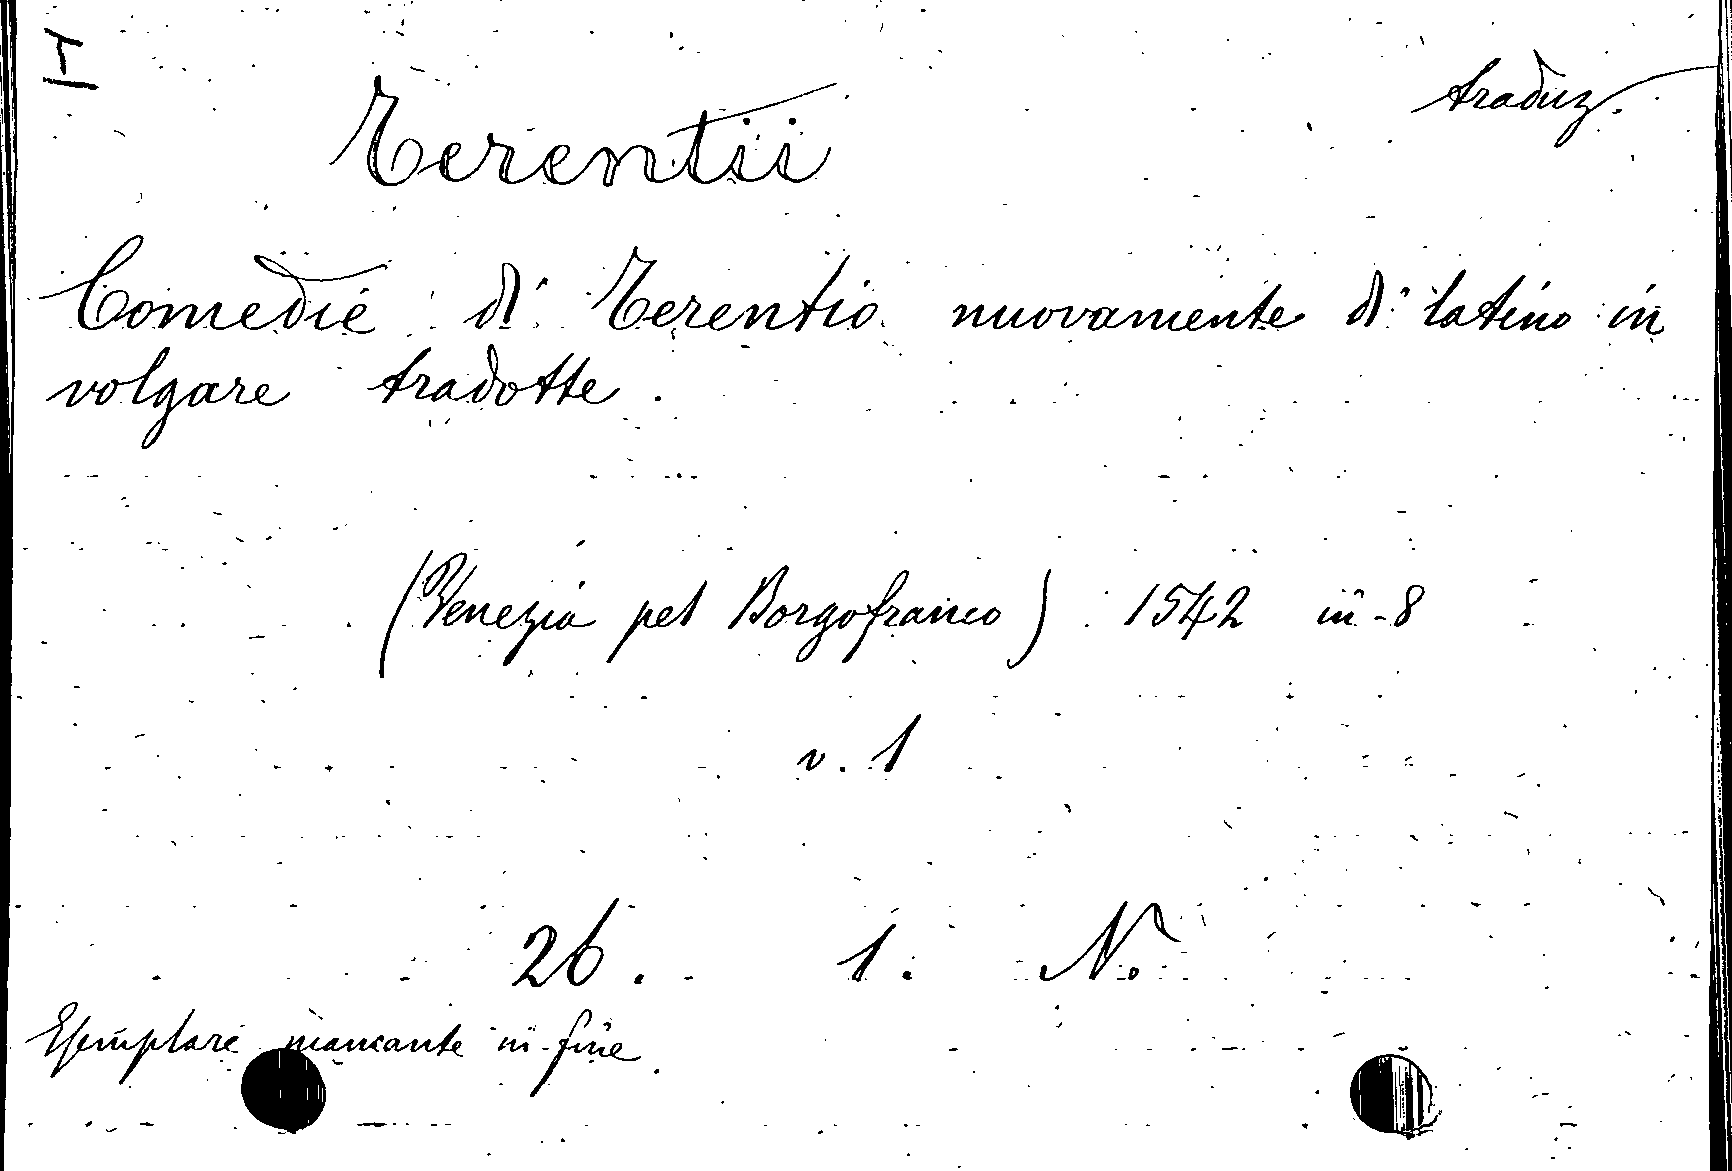 I
traduz.
Terentii
Comedie di Terentio nuovamente di latino in
volgare tradotte.
(Venezia pel Borgofranco) 1542 in-8
v. 1
26. 1. N.
Esemplare mancante in fine.